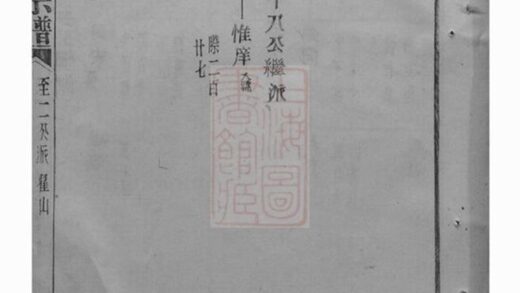 十八公繼派
惟庠
际二百
廿七
宗譜
至二公派
上海圖書館藏